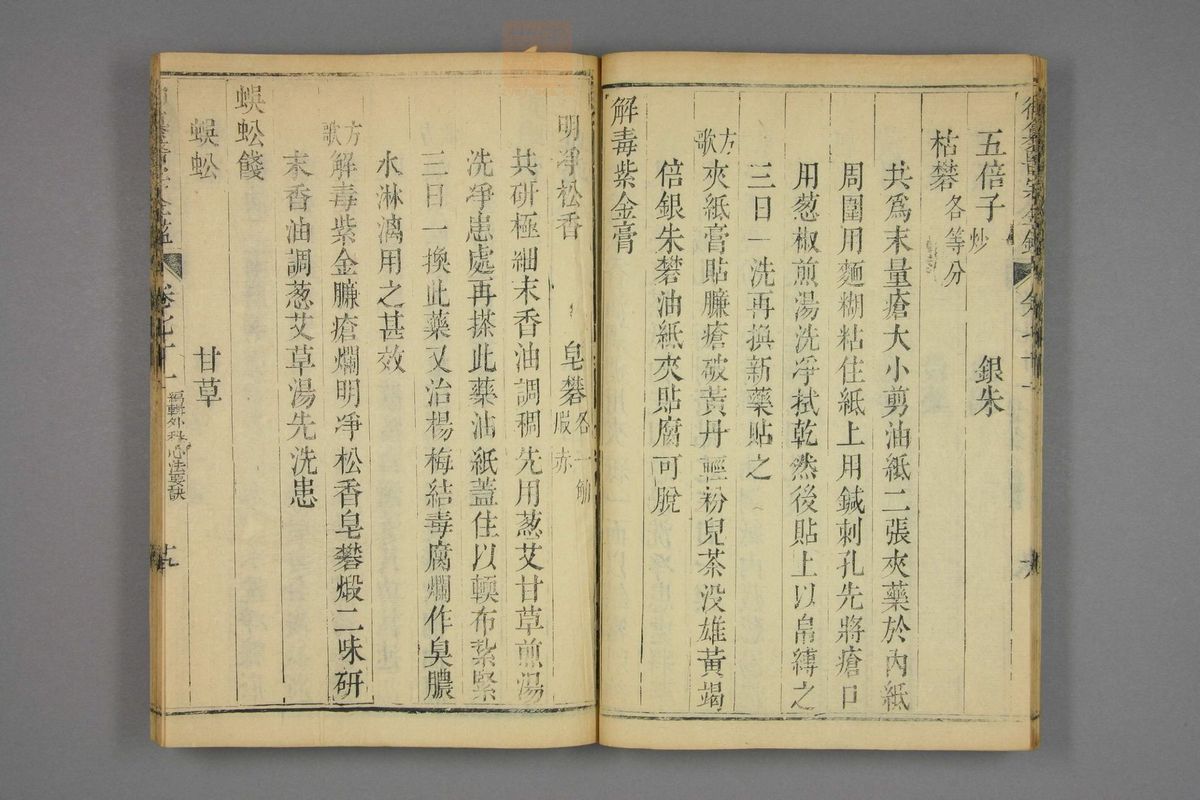 五倍子炒 銀朱
枯礬各等分
共爲末量瘡大小剪油紙二張夾藥於內紙
周圍用麵糊粘住紙上用鍼刺孔先將瘡口
用葱椒煎湯洗淨拭乾然後貼上以帛縛之
三日一洗再換新藥貼之
方歌夾紙膏貼臁瘡破黃丹輕粉兒茶没雄黃竭
倍銀朱礬油紙夾貼腐可脫
解毒紫金膏
明淨松香 皂礬各一觔煅赤
共研極細末香油調稠先用葱艾甘草煎湯
洗淨患處再搽此藥油紙蓋住以輭布紮緊
三日一換此藥又治楊梅結毒腐爛作臭膿
水淋漓用之甚效
方歌解毒紫金臁瘡爛明淨松香皂礬煅二味研
末香油調葱艾草湯先洗患
蜈蚣餞
蜈蚣 甘草
卷七十一 編輯外科心法要訣